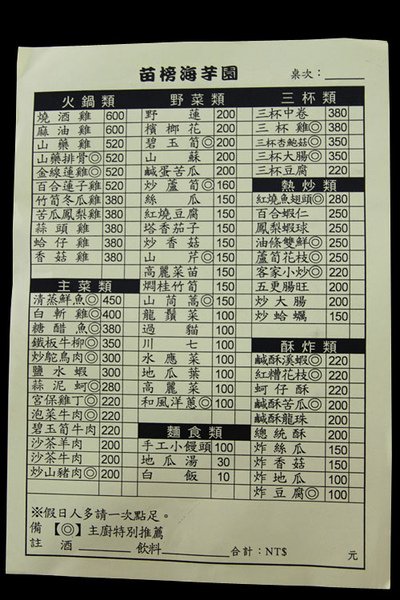 苗榜海芋園
桌次：
火鍋類
燒酒雞 600
麻油雞 600
山藥雞 520
山藥排骨◎ 520
金線蓮雞◎ 520
百合蓮子雞 520
竹筍冬瓜雞 380
苦瓜鳳梨雞 380
蒜頭雞 380
蛤仔雞 380
香菇雞 380
主菜類
清蒸鮮魚◎ 450
白斬雞◎ 400
糖醋魚◎ 380
鐵板牛柳◎ 350
炒鴕鳥肉◎ 300
鹽水蝦 300
蒜泥蚵◎ 280
宮保雞丁◎ 220
泡菜牛肉◎ 220
碧玉筍牛肉 220
沙茶羊肉 200
沙茶牛肉 200
炒山豬肉◎ 200
野菜類
野蓮 200
檳榔花 200
碧玉筍◎ 200
山蘇 200
鹹蛋苦瓜 200
炒蘆筍◎ 160
絲瓜 150
紅燒豆腐 150
塔香茄子 150
炒香菇 150
山芹◎ 150
高麗菜苗 150
燜桂竹筍 150
山茼萵◎ 150
龍鬚菜 100
過貓 100
川七 100
水應菜 100
地瓜葉 100
高麗菜 100
和風洋蔥◎ 100
麵食類
手工小饅頭 100
地瓜湯 30
白飯 10
三杯類
三杯中卷 380
三杯雞◎ 380
三杯杏鮑菇◎ 350
三杯大腸◎ 350
三杯豆腐 220
熱炒類
紅燒魚翅頭◎ 280
百合蝦仁 250
鳳梨蝦球 250
油條雙鮮◎ 250
蘆筍花枝◎ 250
客家小炒◎ 220
五更腸旺 200
炒大腸 200
炒蛤蠣 150
酥炸類
鹹酥溪蝦◎ 220
紅糟花枝◎ 220
蚵仔酥 220
鹹酥苦瓜◎ 200
鹹酥龍珠 200
總統酥 200
炸絲瓜 150
炸香菇 150
炸地瓜 100
炸豆腐◎ 100
※假日人多請一次點足。
備註
【◎】主廚特別推薦
酒 飲料 合計：NT$ 元